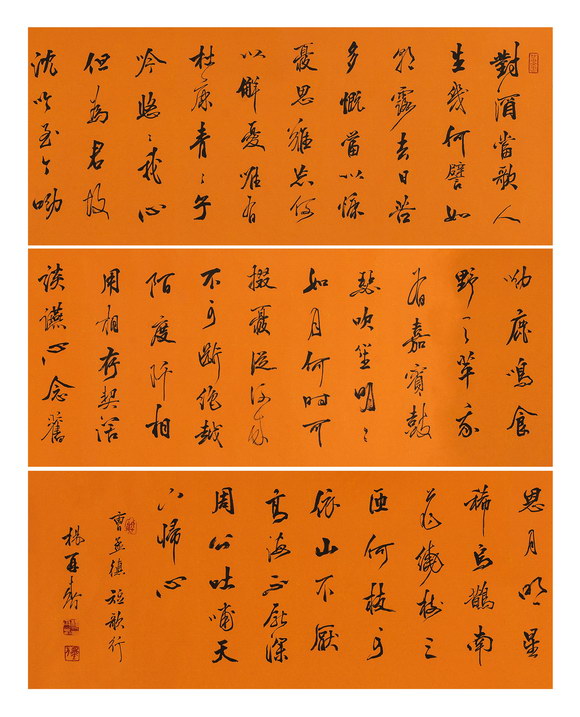 對酒當歌人
生幾何譬如
朝露去日苦
多慨當以慷
憂思難忘何
以解憂唯有
杜康青〻子
衿悠〻我心
但為君故
沈吟至今呦
呦鹿鳴食
野之苹我
有嘉賓鼓
瑟吹笙明〻
如月何時可
掇憂從中來
不可斷絕越
陌度阡枉
用相存契闊
談讌心念舊
恩月明星
稀烏鵲南
飛繞樹三
匝何枝可
依山不厭
高海不厭深
周公吐哺天
下歸心
曹孟德短歌行
楊再